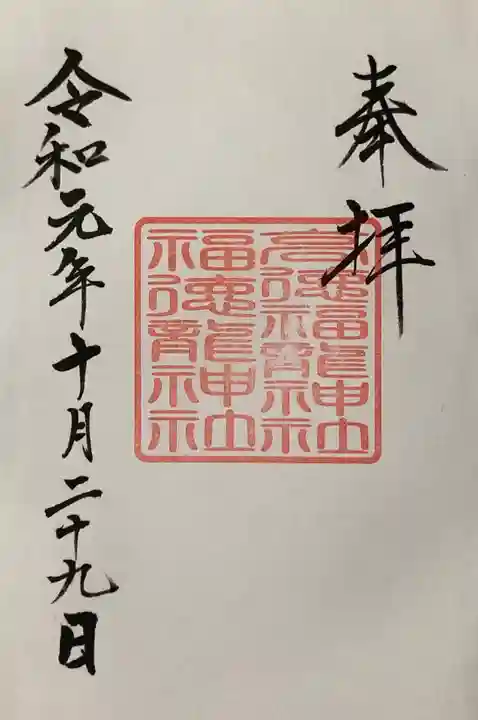 奉拝
徳福龍神社
福徳龍神社
令和元年十月二十九日